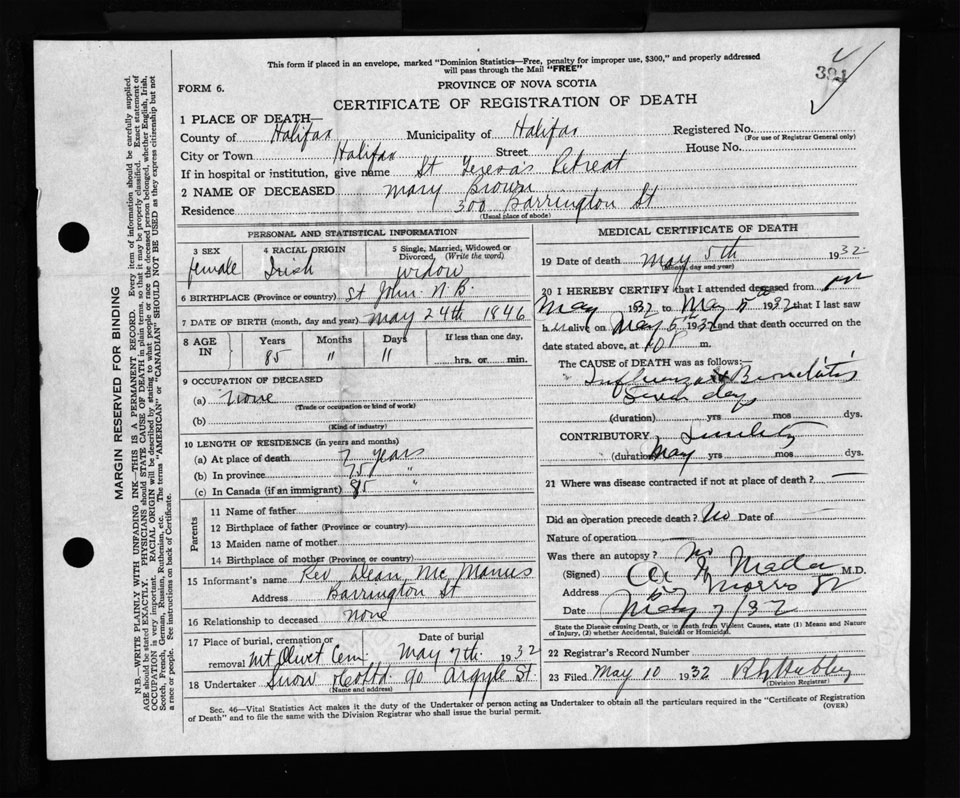 This form if placed in an envelope, marked "Dominion Statistics—Free, penalty for improper use, $300," and properly addressed
will pass through the Mail "FREE"
391
FORM 6.
PROVINCE OF NOVA SCOTIA
CERTIFICATE OF REGISTRATION OF DEATH
1 PLACE OF DEATH—
County of Halifax Municipality of Halifax Registered No.
(For use of Registrar General only)
City or Town Halifax Street House No.
If in hospital or institution, give name St Teresa's Retreat
2 NAME OF DECEASED Mary Brown
Residence 300 Barrington St
(Usual place of abode)
PERSONAL AND STATISTICAL INFORMATION
3 SEX 4 RACIAL ORIGIN 5 Single, Married, Widowed or
Divorced, (Write the word)
female Irish widow
6 BIRTHPLACE (Province or country) St John. N.B.
7 DATE OF BIRTH (month, day and year) May 24th 1846
8 AGE IN Years Months Days If less than one day,
85 11 11 hrs. or min.
9 OCCUPATION OF DECEASED
(a) none
(Trade or occupation or kind of work)
(b)
(Kind of industry)
10 LENGTH OF RESIDENCE (in years and months)
(a) At place of death 7 years
(b) In province 75 "
(c) In Canada (if an immigrant) 85 "
Parents
11 Name of father
12 Birthplace of father (Province or country)
13 Maiden name of mother
14 Birthplace of mother (Province or country)
15 Informant's name Rev Dean McManus
Address Barrington St
16 Relationship to deceased none
17 Place of burial, cremation or Date of burial
removal Mt Olivet Cem. May 7th. 1932
18 Undertaker Snow & Co Ltd. 90 Argyle St.
(Name and address)
MEDICAL CERTIFICATE OF DEATH
19 Date of death May 5th 1932
(Month, day and year)
20 I HEREBY CERTIFY that I attended deceased from
May 1932 to May 5 1932 that I last saw
h alive on May 5 1932 and that death occurred on
date stated above, at 10 P m.
The CAUSE OF DEATH was as follows:—
Influenza & Bronchitis
Seven days
(duration) yrs mos dys.
CONTRIBUTORY Senility
(duration) Many yrs mos dys.
21 Where was disease contracted if not at place of death? —
Did an operation precede death? No Date of
Nature of operation
Was there an autopsy? No
(Signed) Mader M.D.
Address 67 Morris St
Date May 7/32
State the Disease causing Death, or in death from Violent Causes, state (1) Means and Nature
of Injury, (2) whether Accidental, Suicidal or Homicidal.
22 Registrar's Record Number
23 Filed May 10 1932
(Division Registrar)
Sec. 46—Vital Statistics Act makes it the duty of the Undertaker or person acting as Undertaker to obtain all the particulars required in the "Certificate of Registration
of Death" and to file the same with the Division Registrar who shall issue the burial permit.
(OVER)
MARGIN RESERVED FOR BINDING
N.B.—WRITE PLAINLY WITH UNFADING INK—THIS IS A PERMANENT RECORD. Every item of information should be carefully supplied.
AGE should be stated EXACTLY. PHYSICIANS should STATE CAUSE OF DEATH in plain terms, so that it may be properly classified. Exact statement of
OCCUPATION is very important. RACIAL ORIGIN will be described by stating to what people or race the deceased person belonged, whether English, Irish,
Scotch, French, German, Russian, Ruthenian, etc. The terms "AMERICAN" or "CANADIAN" SHOULD NOT BE USED as they express citizenship but not
a race or people. See instructions on back of Certificate.